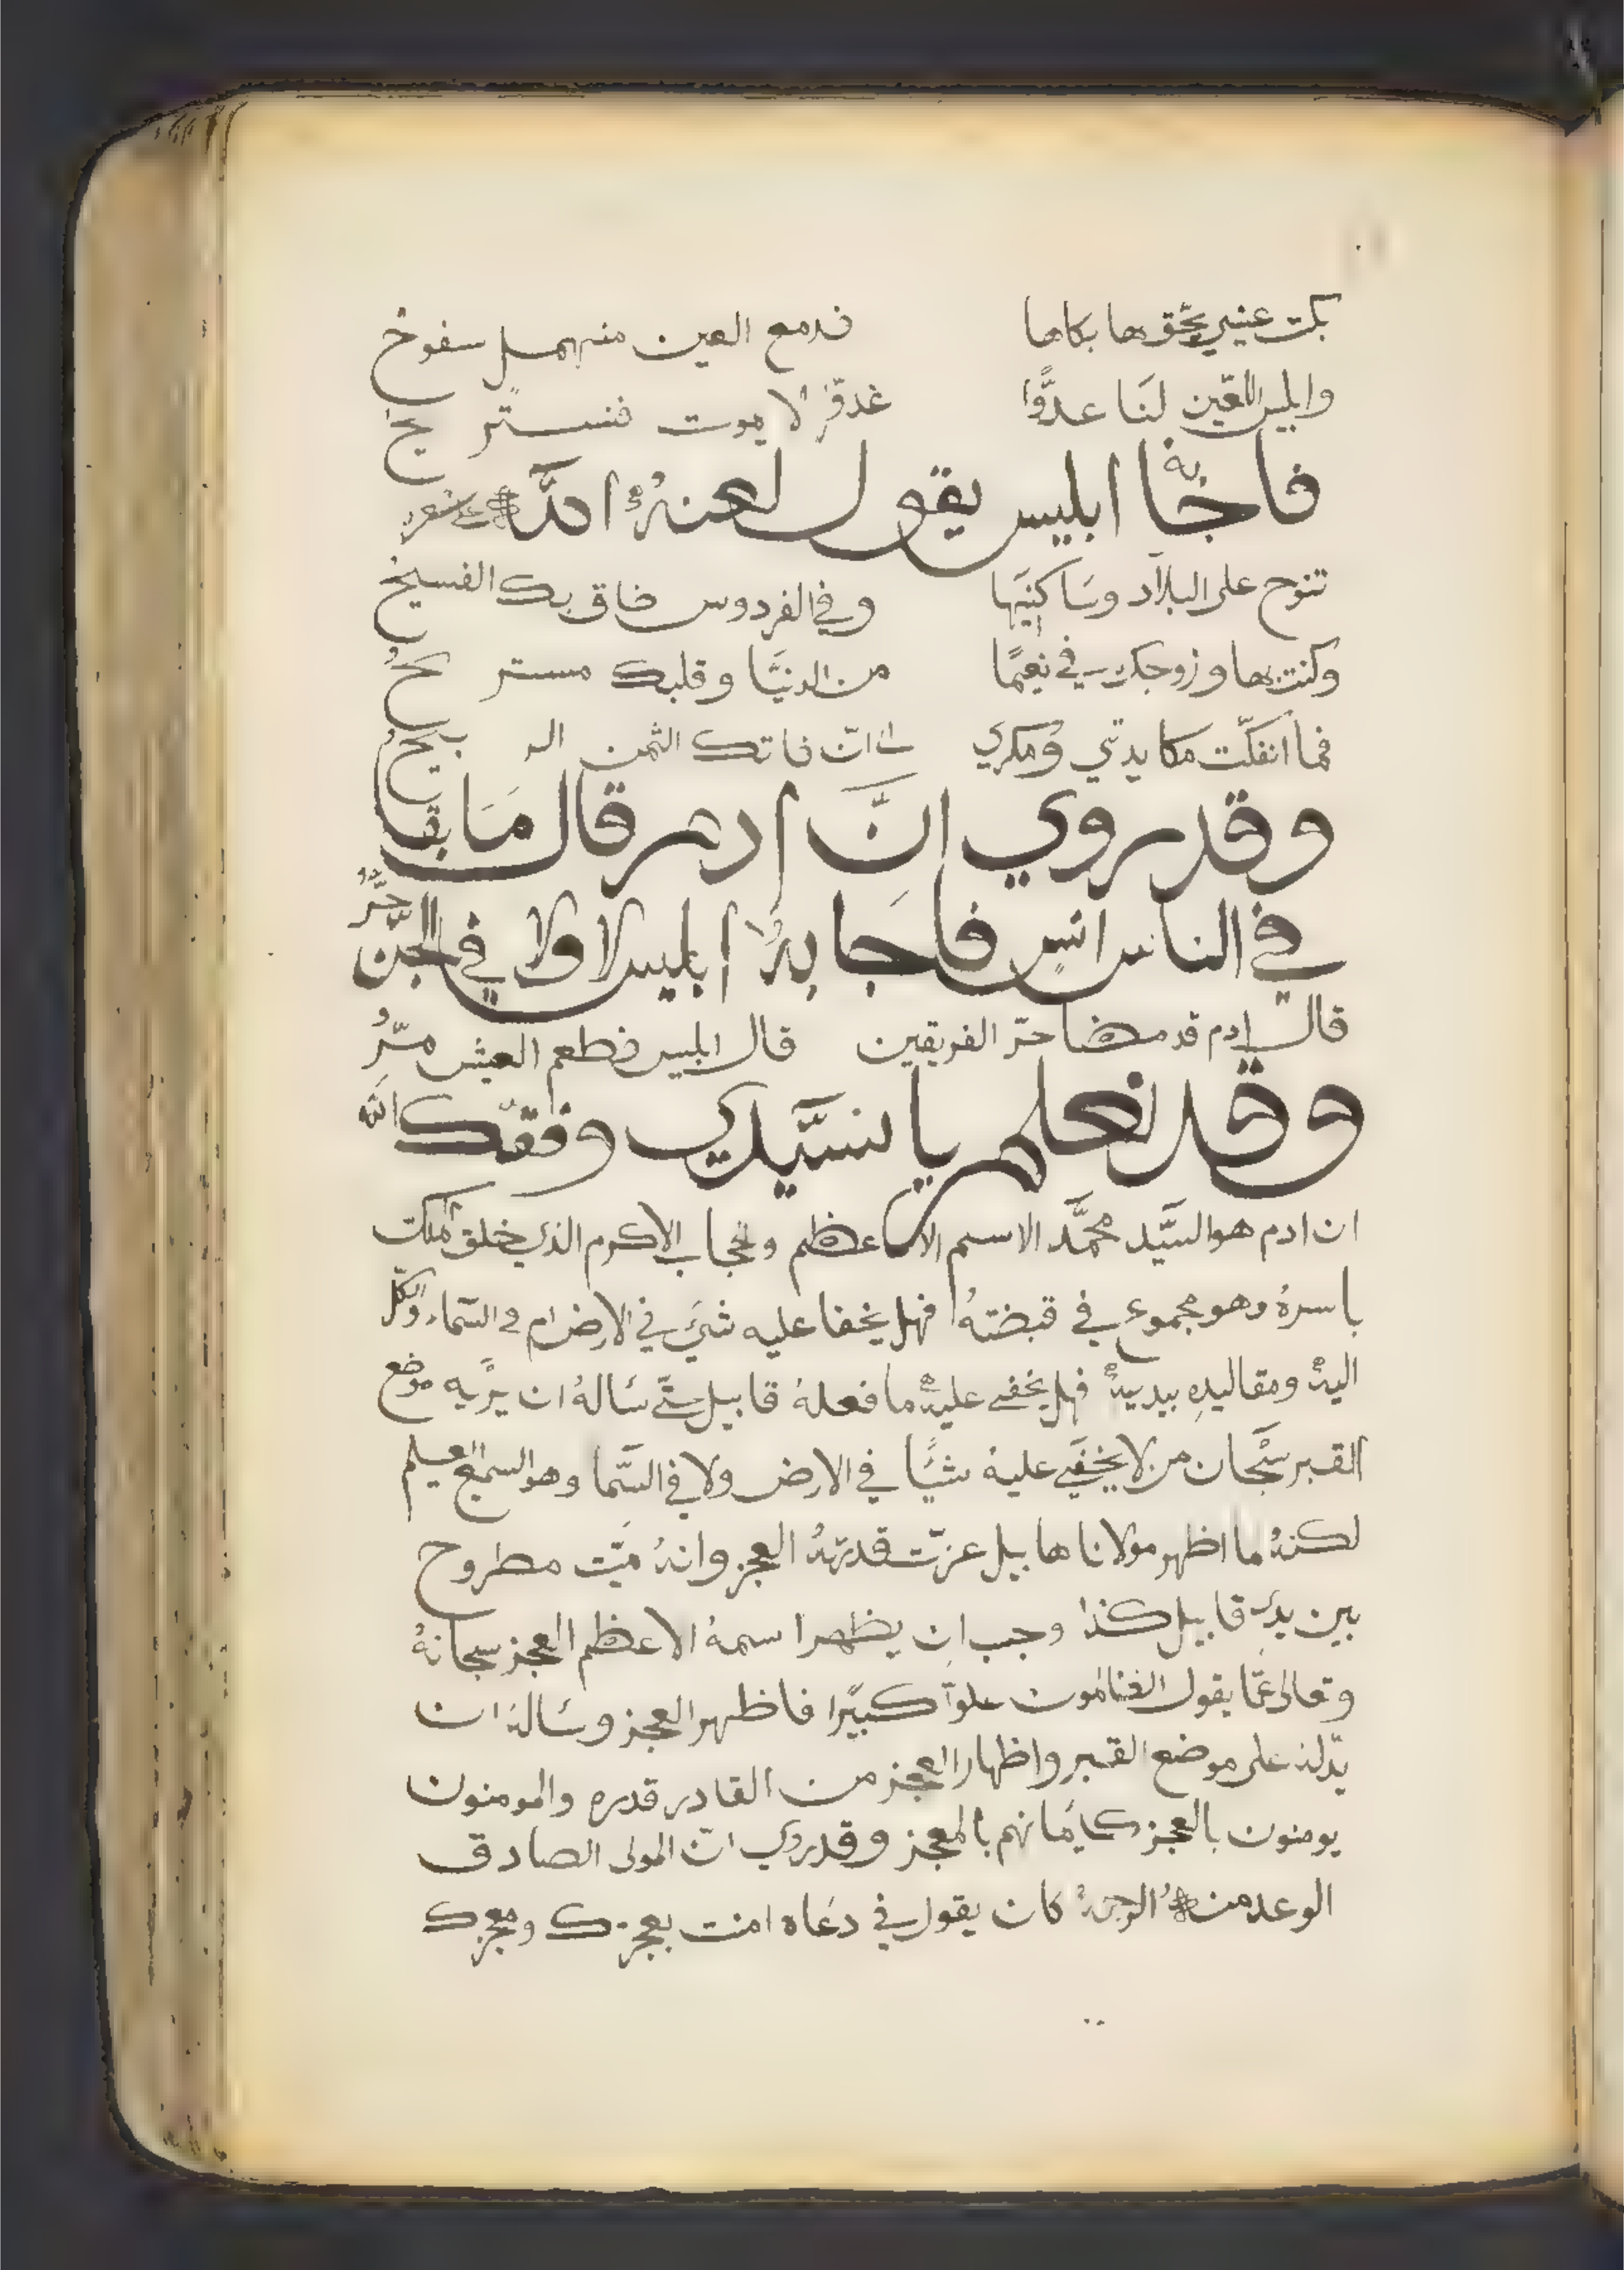 بكت عيني بحق ها بكاها فدمع العين منهمل سفوح
وابليس اللعين لنا عدوًّا لا يموت فنستريح
فاجابه ابليس يقول لعنهُ الله شعر
تنوح على البلاد وساكنيها وفي الفردوس ضاق بك الفسيح
وكنت بها وزوجك في نعيمًا من الدنيا وقلبك مستريحُ
فما انفكّت مكايدتي ومكري الى انّ فاتك الثمن الربيحُ
وقد روي انَّ ادم قال مَا بقا
في الناس انسٍ فاجابهُ ابليس لا ولا في الجنّ حرُّ
قال ادم قد مضا حرّ الفريقين قال ابليس فطعم العيش مرُّ
وقد نعلم يا سيَّدي وفقّك الله
ان ادم هو السيَّد محمَّد الاسم الاعظم والحجاب الاكرم الذي خلق الملك
باسرهُ وهو مجموع في قبضتهُ فهل يخفا عليه شيَ في الارض ام في السماء والكل
اليهُ ومقاليده بيديهُ فهل يخفى عليهُ ما فعلهُ قابيل حتّى سَالهُ ان يرّيه موضع
القبر سبْحان من لا يخفَى عليهُ شيًّا في الارض ولا في السّما وهو السميع العليم
لكنهُ لما اظهر مولانا هابيل عزّت قدرتهُ العجز وانهُ ميّت مطروح
بين يدي قابيل كذا وجب ان يظهر اسمهُ الاعظم العجز سبحانهُ
وتعالى عمّا يقول الظالمون علوّاً كبيًرا فاظهر العجز وسَالهُ ان
يدّلهُ على موضع القبر واظهار العجز من القادر قدره والمومنون
يومنون بالعجز كايمانهم بالمعجز وقد روي انّ المولى الصادق
الوعد منهُ الرحمهُ كان يقول في دعَاه امنت بعجزك ومعجزك